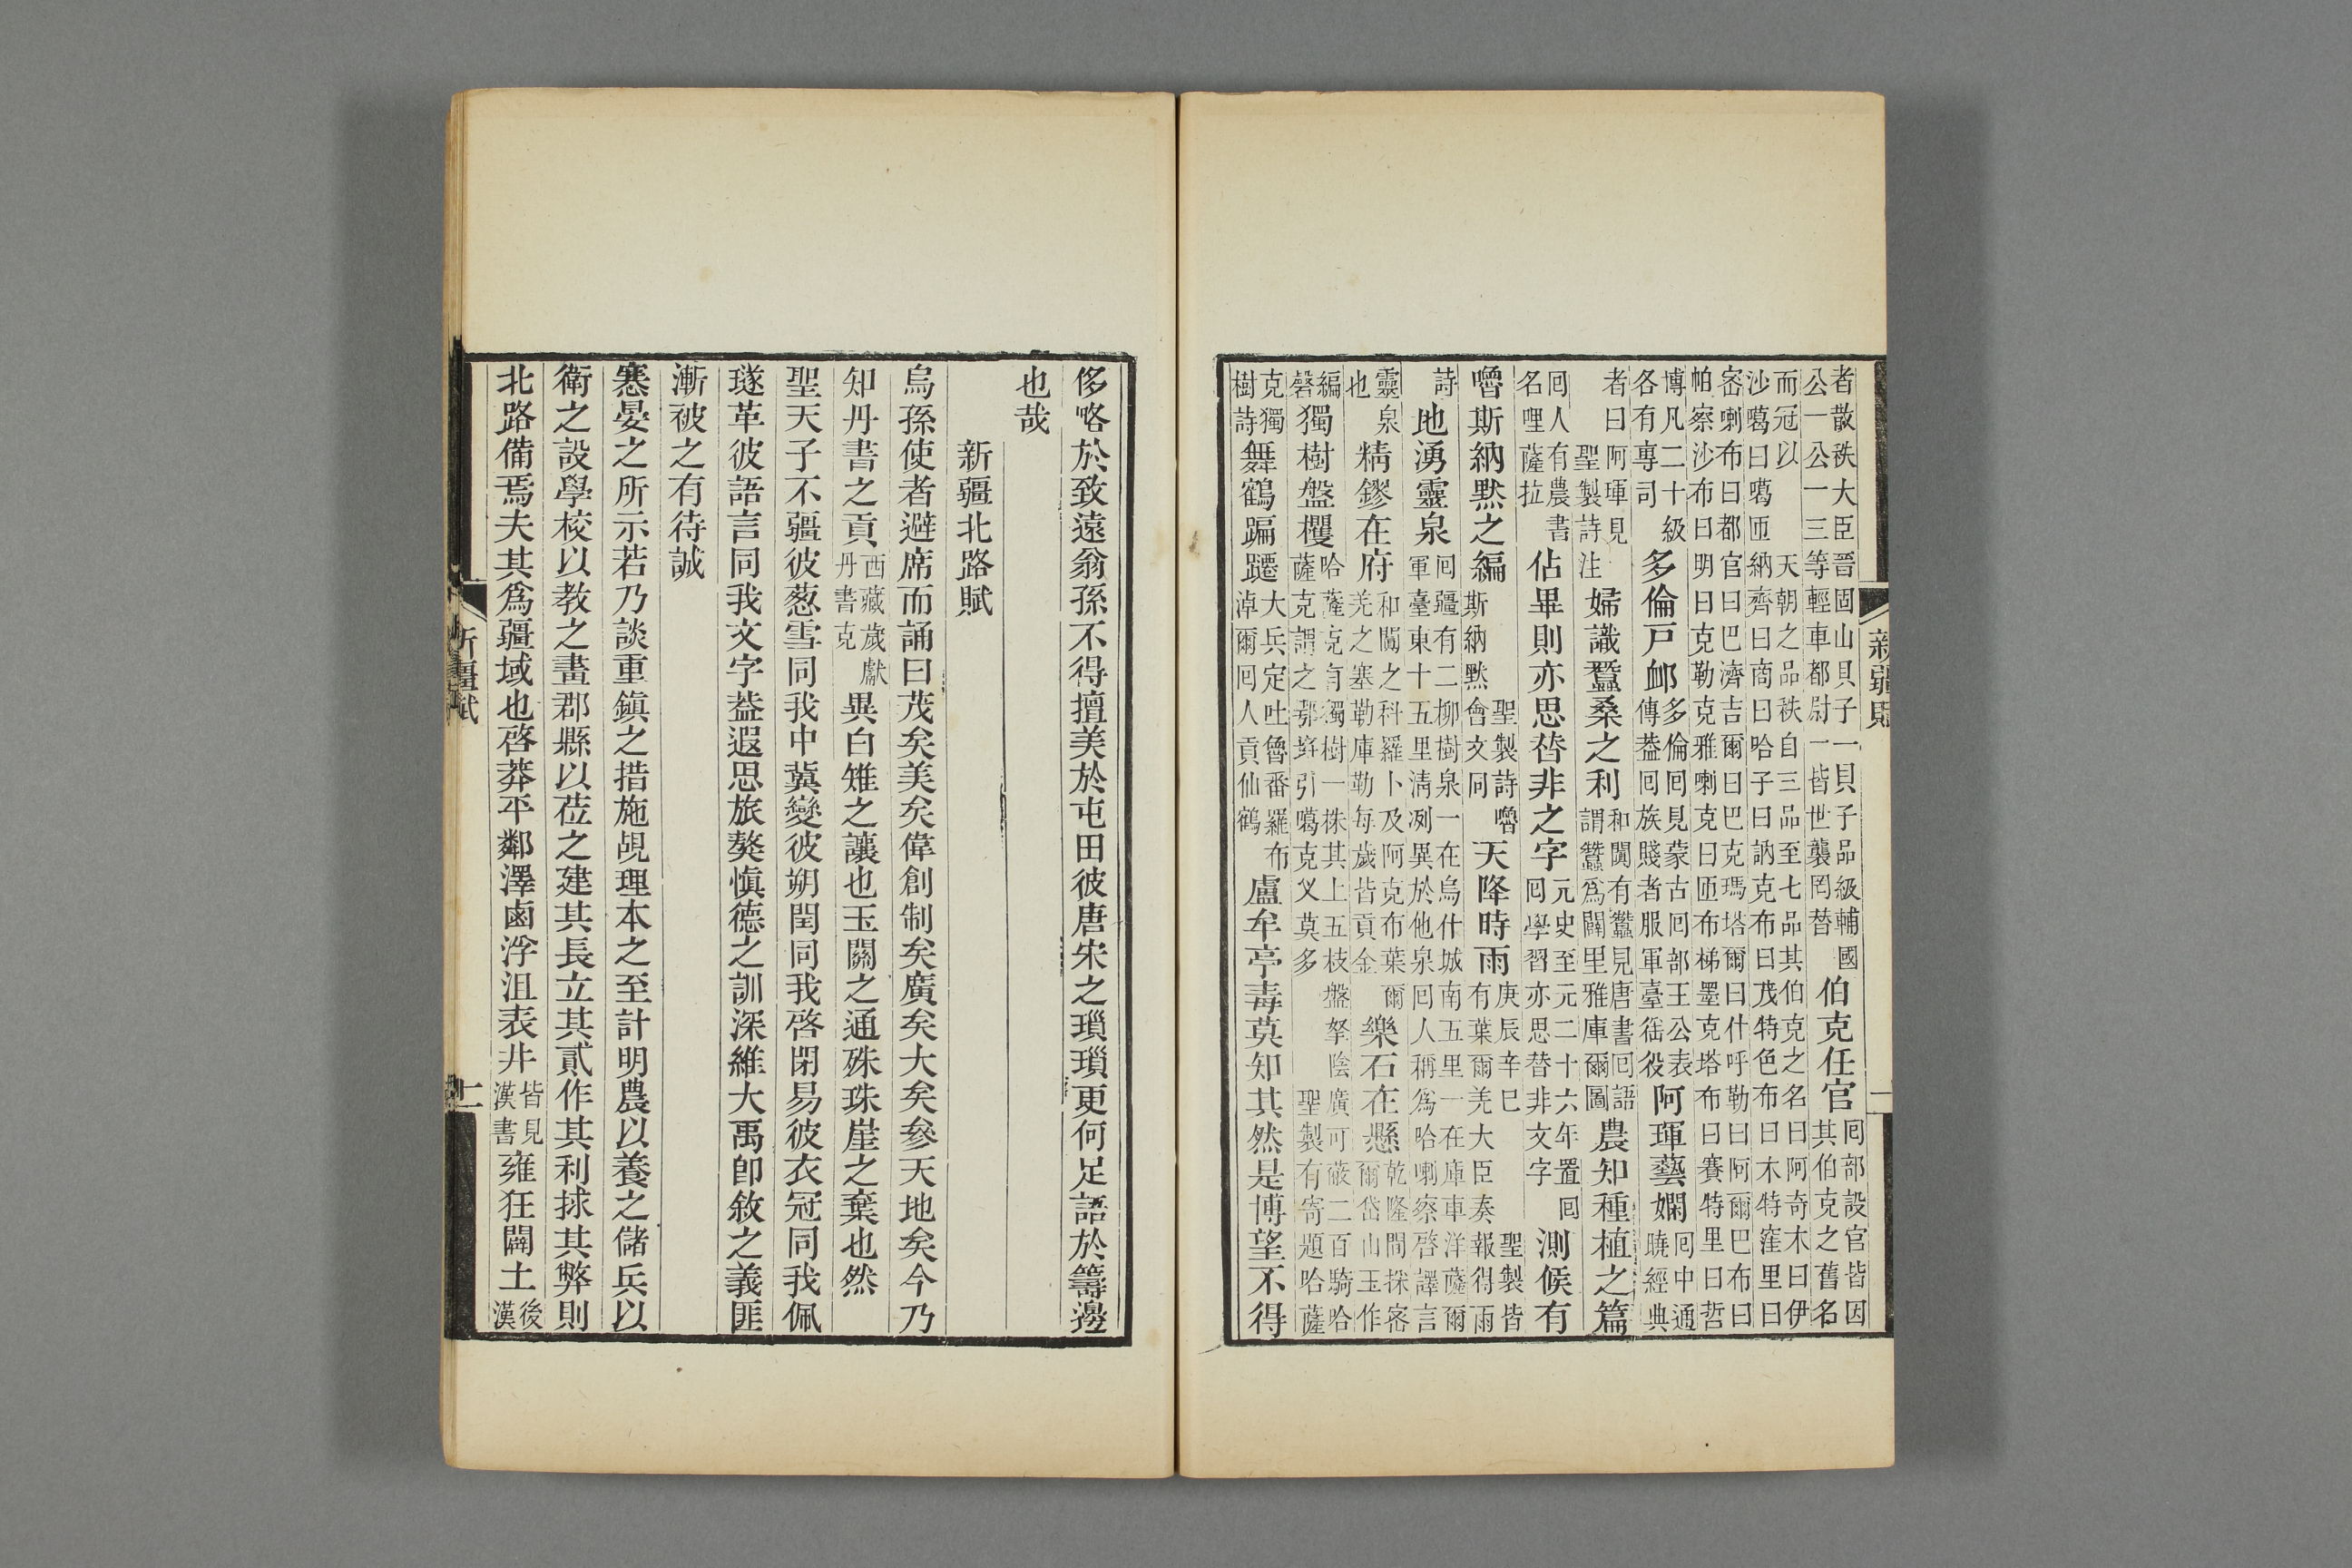 者散秩大臣晉固山貝子一貝子品級輔國公一公一三等輕車都尉一皆世襲罔替伯克任官回部設官皆因其伯克之舊名
而冠以天朝之品秩自三品至七品其伯克之名曰阿奇木曰伊沙噶曰噶匝納齊曰商曰哈子曰訥克布曰茂特色布曰木特窪里曰
密喇布曰都官曰巴濟吉爾曰巴克瑪塔爾曰什呼勒曰阿爾巴布曰帕察沙布曰明曰克勒克雅喇克曰匝布梯墨克塔布曰賽特里曰哲
博凡二十級各有專司多倫戶邮多倫回見蒙古回部王公表傳葢回族賤者服軍臺徭役阿琿藝嫻回中通曉經典
者曰阿琿見聖製詩注婦識蠶桑之利和闐有蠶見唐書回語謂蠶爲闢里雅庫爾圖農知種植之篇
回人有農書名哩薩拉佔畢則亦思替非之字元史至元二十六年置回回學習亦思替非文字測候有
嚕斯納黙之編聖製詩嚕斯納黙會文同天降時雨庚辰辛巳聖製皆有葉爾羌大臣奏報得雨
詩地湧靈泉回疆有二柳樹泉一在烏什城南五里一在庫車洋薩爾軍臺東十五里淸冽異於他泉回人稱爲哈喇察啓譯言
靈泉也精鏐在府和闐之科羅卜及阿克布葉爾羌之塞勒庫勒每歲皆貢金樂石在懸乾隆間採密爾岱山玉作
編磬獨樹盤欔哈薩克有獨樹一株其上五枝盤拏陰廣可蔽二百騎哈薩克謂之鄂引噶克叉莫多聖製有寄題哈薩
克獨樹詩舞鶴蹁躚大兵定吐魯番羅布淖爾回人貢仙鶴盧牟亭毒莫知其然是博望不得
新疆賦
侈咯於致遠翁孫不得擅美於屯田彼唐宋之瑣瑣更何足語於籌邊
也哉
新疆北路賦
烏孫使者避席而誦曰茂矣美矣偉創制矣廣矣大矣參天地矣今乃
知丹書之貢西藏歲獻丹書克異白雉之讓也玉關之通殊珠崖之棄也然
聖天子不疆彼葱雪同我中冀變彼朔閏同我啓閉易彼衣冠同我佩
璲革彼語言同我文字葢遐思旅獒愼德之訓深維大禹卽敘之義匪
漸被之有待誠
寋晏之所示若乃談重鎭之措施覘理本之至計明農以養之儲兵以
衛之設學校以教之畫郡縣以莅之建其長立其貳作其利捄其弊則
北路備焉夫其爲疆域也啓莽平鄰澤鹵浮沮表井皆見漢書雍狂闢土後漢
新疆賦
二